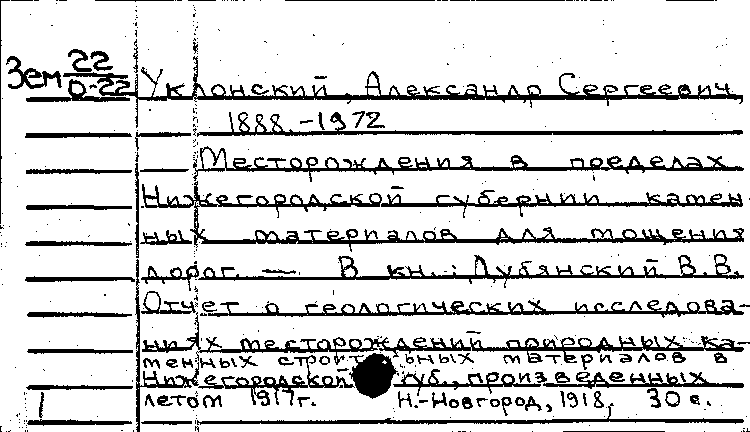 Зем 22/0-22 Уклонский, Александр Сергеевич,
1888.-1972
Месторождения в пределах
Нижегородской губернии камен
ных материалов для мощения
дорог. — В кн.: Дубянский В.В.
Отчет о геологических исследова-
ниях месторождений природных ка-
менных строительных материалов в
Нижегородской губ., произведенных
1 летом 1917г. Н.-Новгород, 1918, 30 с.